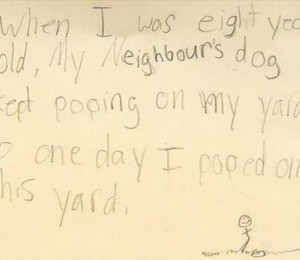 When I was eight yea
old, My Neighbour's dog
kept poping on my yard
so one day I poped on
his yard.